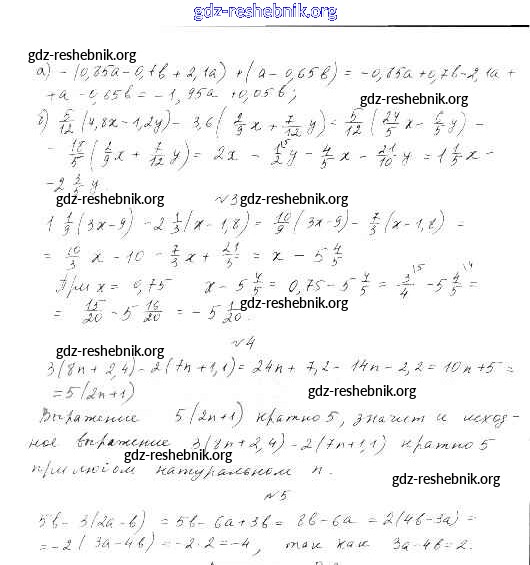 gdz-reshebnik.org
gdz-reshebnik.org
а) -(0,85a - 0,7b + 2,1a) + (a - 0,65b) = -0,85a + 0,7b - 2,1a +
+ a - 0,65b = -1,95a + 0,05b;
gdz-reshebnik.org
б) 5/12 (4,8x - 1,2y) - 3,6(2/9 x + 7/12 y) = 5/12 (24/5 x - 6/5 y) -
- 18/5 (2/9 x + 7/12 y) = 2x - 1/2 y - 4/5 x - 21/10 y = 1 1/5 x -
- 2 3/5 y.
№3
gdz-reshebnik.org
gdz-reshebnik.org
1 1/9 (3x - 9) - 2 1/3 (x - 1,8) = 10/9 (3x - 9) - 7/3 (x - 1,8) =
= 10/3 x - 10 - 7/3 x + 21/5 = x - 5 4/5
При x = 0,75 x - 5 4/5 = 0,75 - 5 4/5 = 3/4 - 5 4/5 =
= 15/20 - 5 16/20 = -5 1/20.
gdz-reshebnik.org
№4
gdz-reshebnik.org
3(8n + 2,4) - 2(7n + 1,1) = 24n + 7,2 - 14n - 2,2 = 10n + 5 =
= 5(2n + 1)
gdz-reshebnik.org
Выражение 5(2n+1) кратно 5, значит и исход-
ное выражение 3(8n + 2,4) - 2(7n + 1,1) кратно 5
gdz-reshebnik.org
при любом натуральном n.
gdz-reshebnik.org
№5
5b - 3(2a - b) = 5b - 6a + 3b = 8b - 6a = 2(4b - 3a) =
= -2(3a - 4b) = -2·2 = -4, так как 3a - 4b = 2.